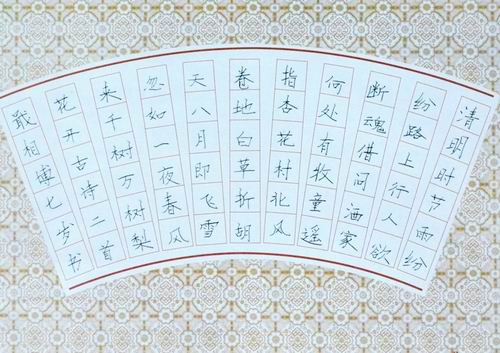 清明时节雨纷
纷路上行人欲
断魂借问酒家
何处有牧童遥
指杏花村北风
卷地白草折胡
天八月即飞雪
忽如一夜春风
来千树万树梨
花开古诗二首
相博七岁书